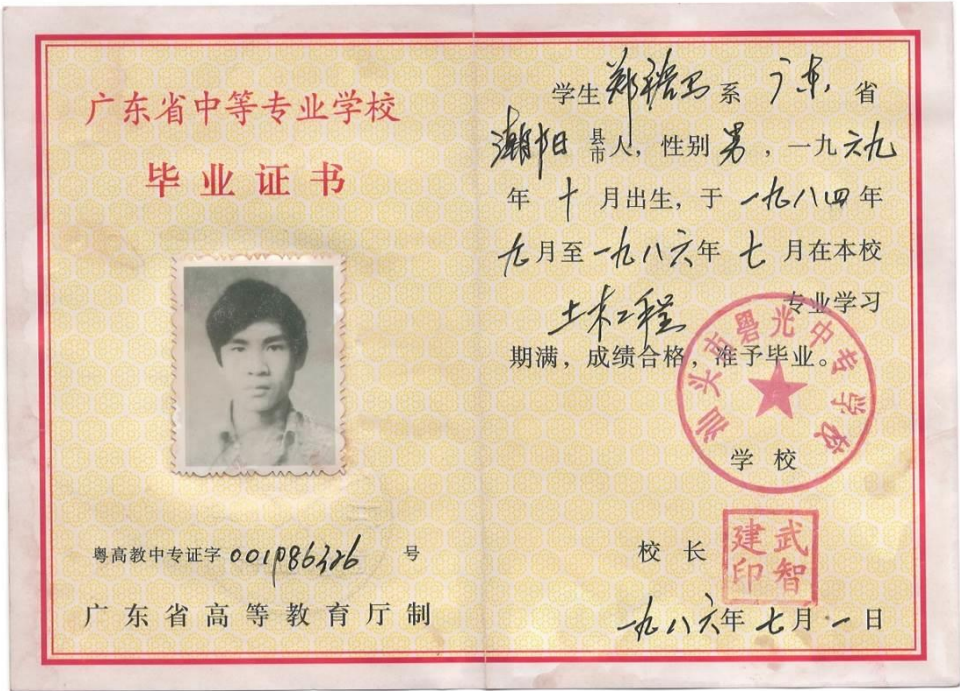 广东省中等专业学校
毕业证书
粤高教中专证字 号
广东省高等教育厅制
学生 郑 系 广东 省
潮阳 县市 人，性别 男，一九六九
年 十 月出生，于 一九八四 年
九月至一九八六年 七 月在本校
土木工程 专业学习
期满，成绩合格，准予毕业。
汕头市礐光中专学校
学校
校长
武智建印
一九八六年 七 月 一 日